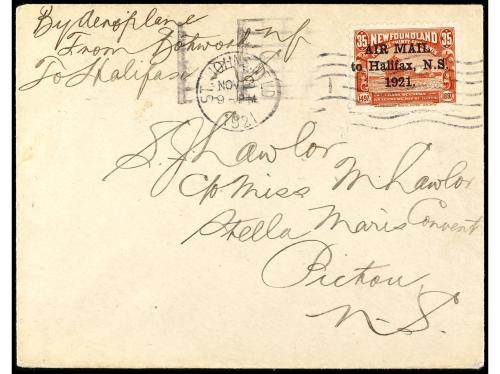 By Aeroplane
From Botwood nf
To Halifax
ST. JOHN'S NFLD
NOV
9-PM
1921
35 35
NEWFOUNDLAND
AIR MAIL
to Halifax, N.S.
1921.
S. J. Lawlor
c/o Miss M Lawlor
Stella Maris Convent
Pictou
N-S.